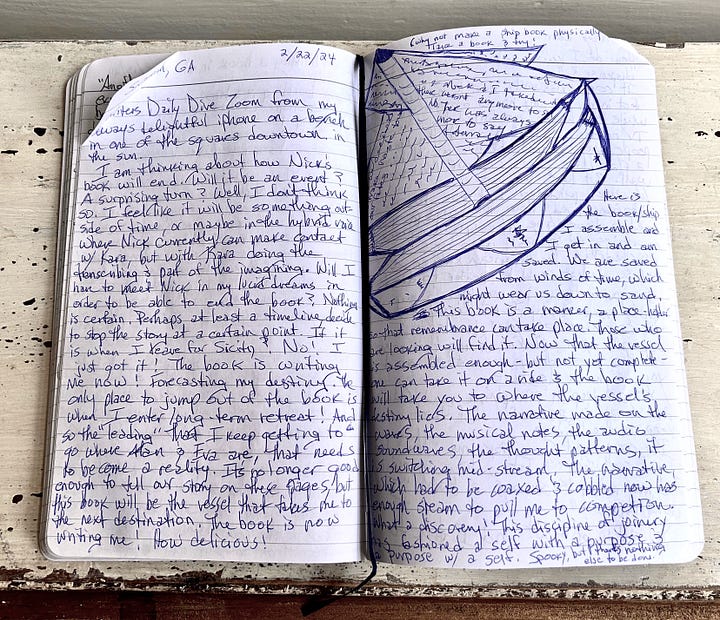 2/22/24
GA
Writers Daily Dive Zoom from my
always delightful iphone on a bench
in one of the squares downtown in
the sun.
I am thinking about how Nick's
book will end. Will it be an event?
A surprising turn? Well, I don't think
so. I feel like it will be something out-
side of time, or maybe in the hybrid voice
where Nick currently can make contact
w/ Kara, but with Kara doing the
transcribing & part of the imagining. Will I
have to meet Nick in my lucid dreams in
order to be able to end the book? Nothing
is certain. Perhaps at least a timeline, decide
to stop the story at a certain point. If it
is when I leave for Sicily? No! I
just got it! The book is writing
me now! Forecasting my destiny, the
only place to jump out of the book is
when I enter long-term retreat! And
so the "leading" that I keep getting to
go where Alan & Eva are, that needs
to become a reality. It's no longer good
enough to tell our story on these pages, but
this book will be the vessel that takes me to
the next destination. The book is now
writing me! How delicious!
Why not make a ship book physically
Have a book & try!
there was always
more to say
Here is
the book/ship
I assemble and
I get in and am
saved. We are saved
from winds of time, which
might wear us down to sand.
This book is a marker, a place-holder
so that remembrance can take place. Those who
are looking will find it. Now that the vessel
is assembled enough - but not yet complete -
one can take it on a ride & the book
will take you to where the vessel's
destiny lies. The narrative made on the
waves, the musical notes, the audio
soundwaves, the thought patterns, it
is switching mid-stream. The narrative,
which had to be coaxed & cobbled now has
enough steam to pull me to completion.
What a discovery! This discipline of joinery
has fashioned a self with a purpose &
a purpose w/ a self. Spooky, but there's nothing
else to be done.